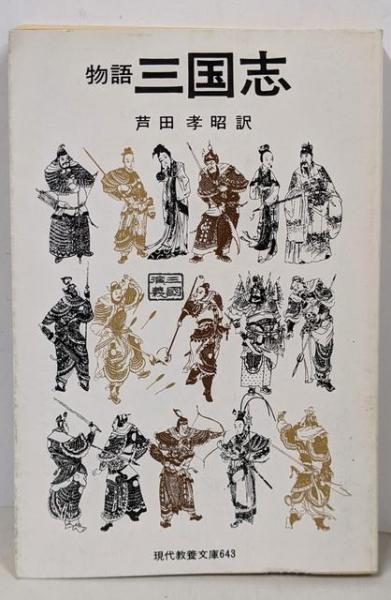 物語 三国志
芦田孝昭訳
三國
演義
現代教養文庫643